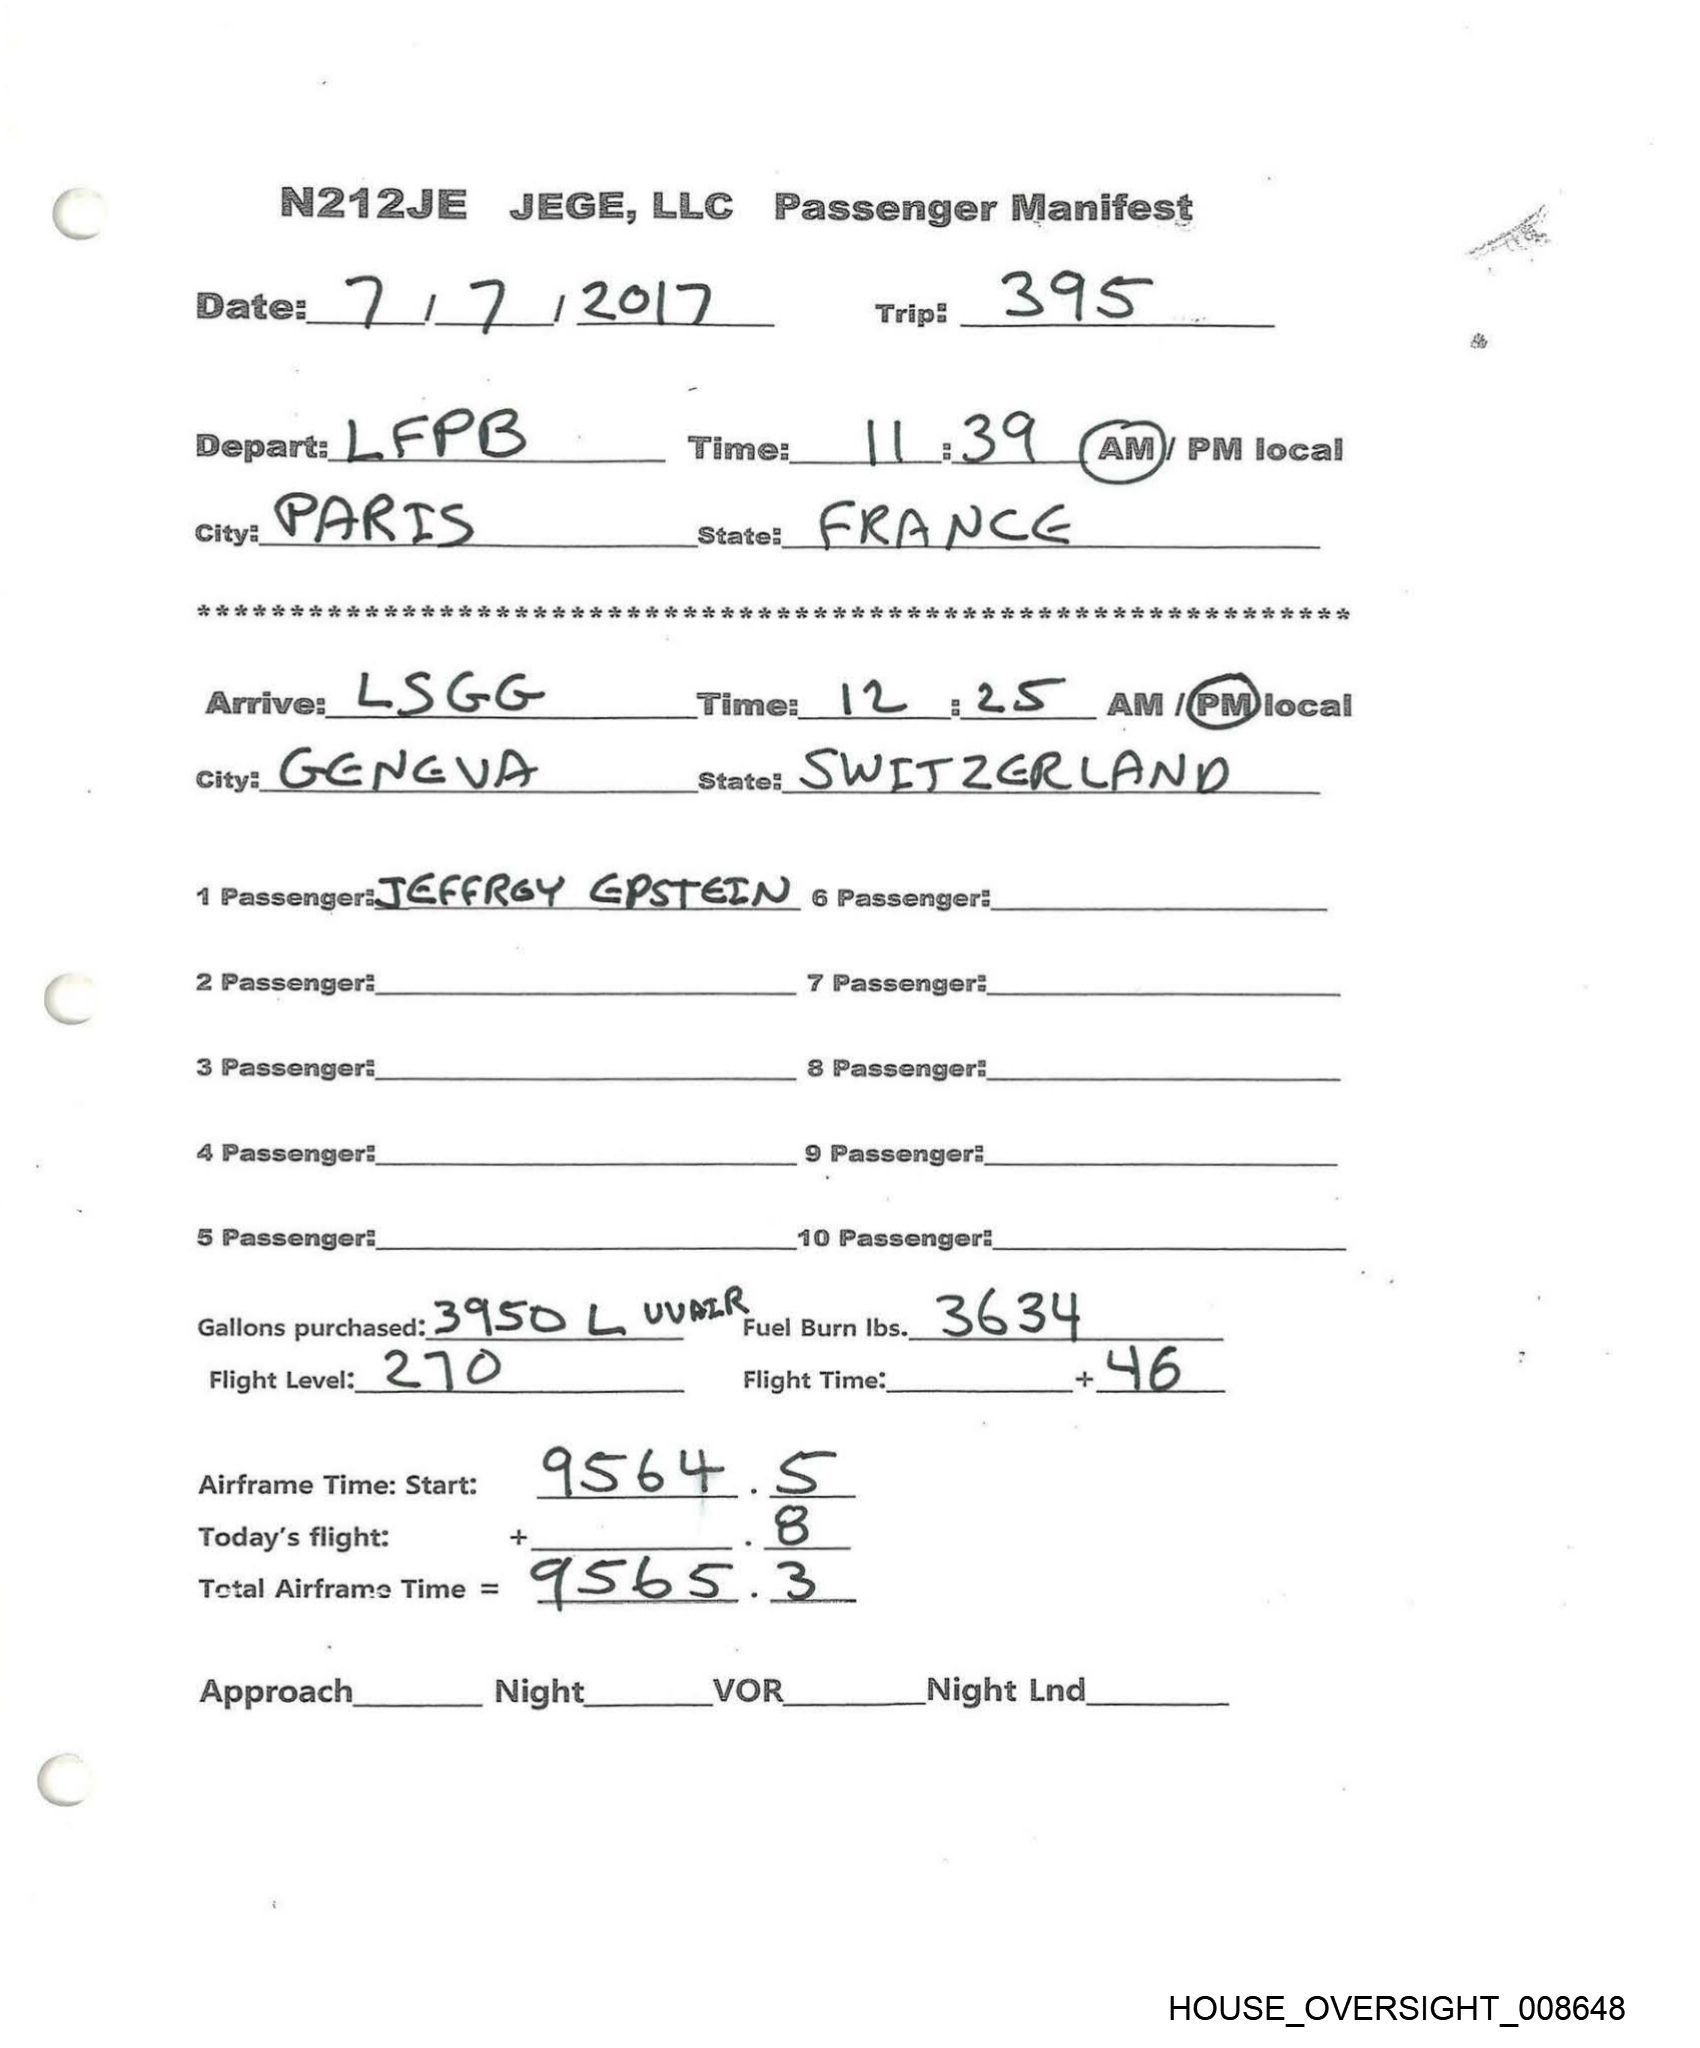 N212JE JEGE, LLC Passenger Manifest
Date: 7 / 7 / 2017 Trip: 395
Depart: LFPB Time: 11 : 39 AM / PM local
City: PARIS State: FRANCE
**************************************************************
Arrive: LSGG Time: 12 : 25 AM / PM local
City: GENEVA State: SWITZERLAND
1 Passenger: JEFFREY EPSTEIN 6 Passenger:
2 Passenger: 7 Passenger:
3 Passenger: 8 Passenger:
4 Passenger: 9 Passenger:
5 Passenger: 10 Passenger:
Gallons purchased: 3950 L UVAIR Fuel Burn lbs. 3634
Flight Level: 270 Flight Time: + 46
Airframe Time: Start: 9564 . 5
Today's flight: + . 8
Total Airframe Time = 9565 . 3
Approach Night VOR Night Lnd
HOUSE_OVERSIGHT_008648